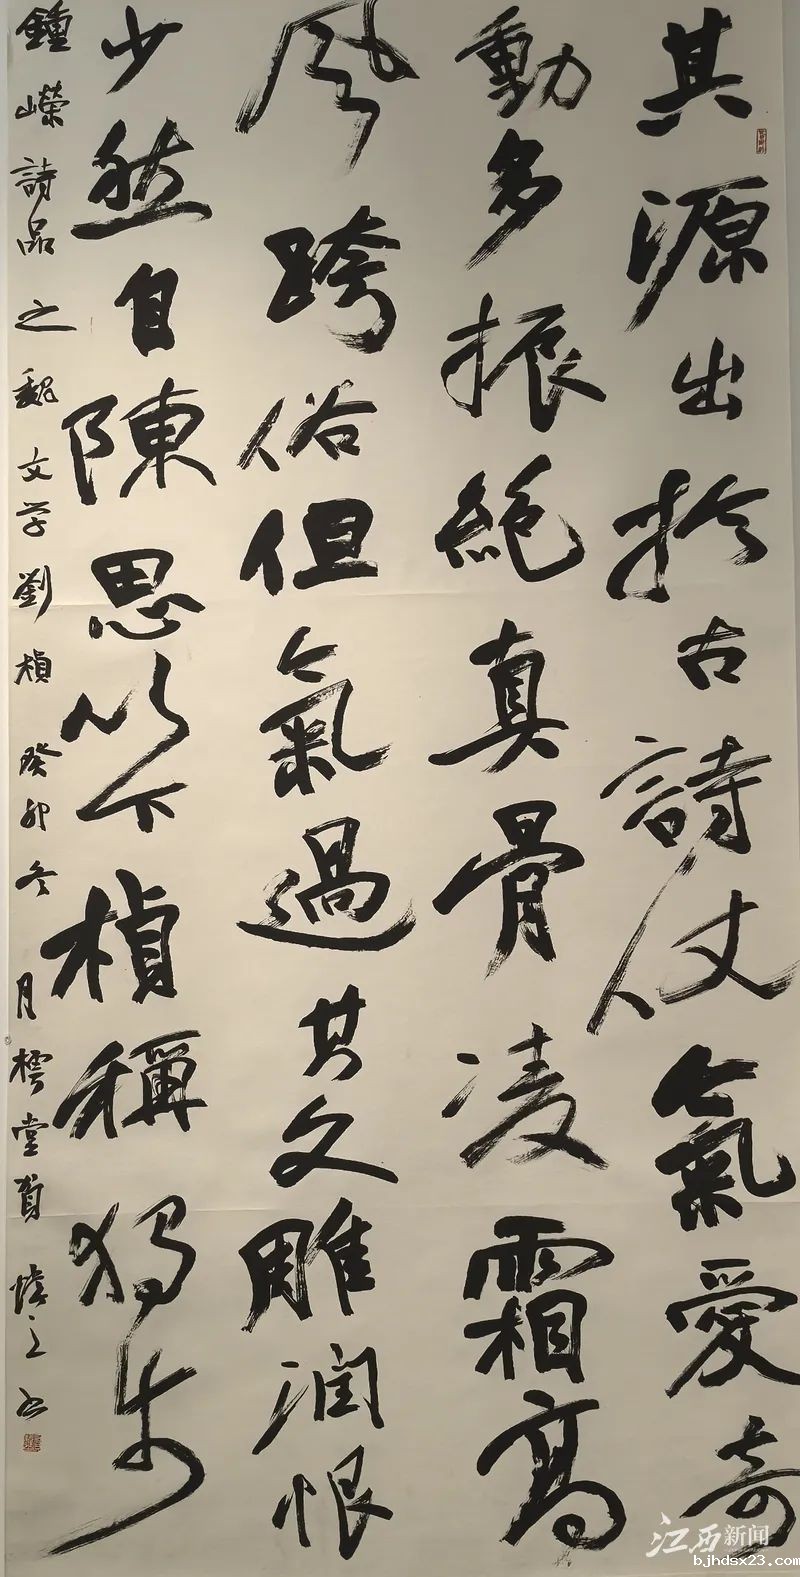 其源出於古詩仗氣愛奇
動多振絕真骨凌霜高
風跨俗但氣過其文雕润恨
少然自陳思以下楨稱獨步
鍾嶸詩品之魏文学劉楨癸卯冬月樗堂賀之书
江西新闻
bjhdsx23.com